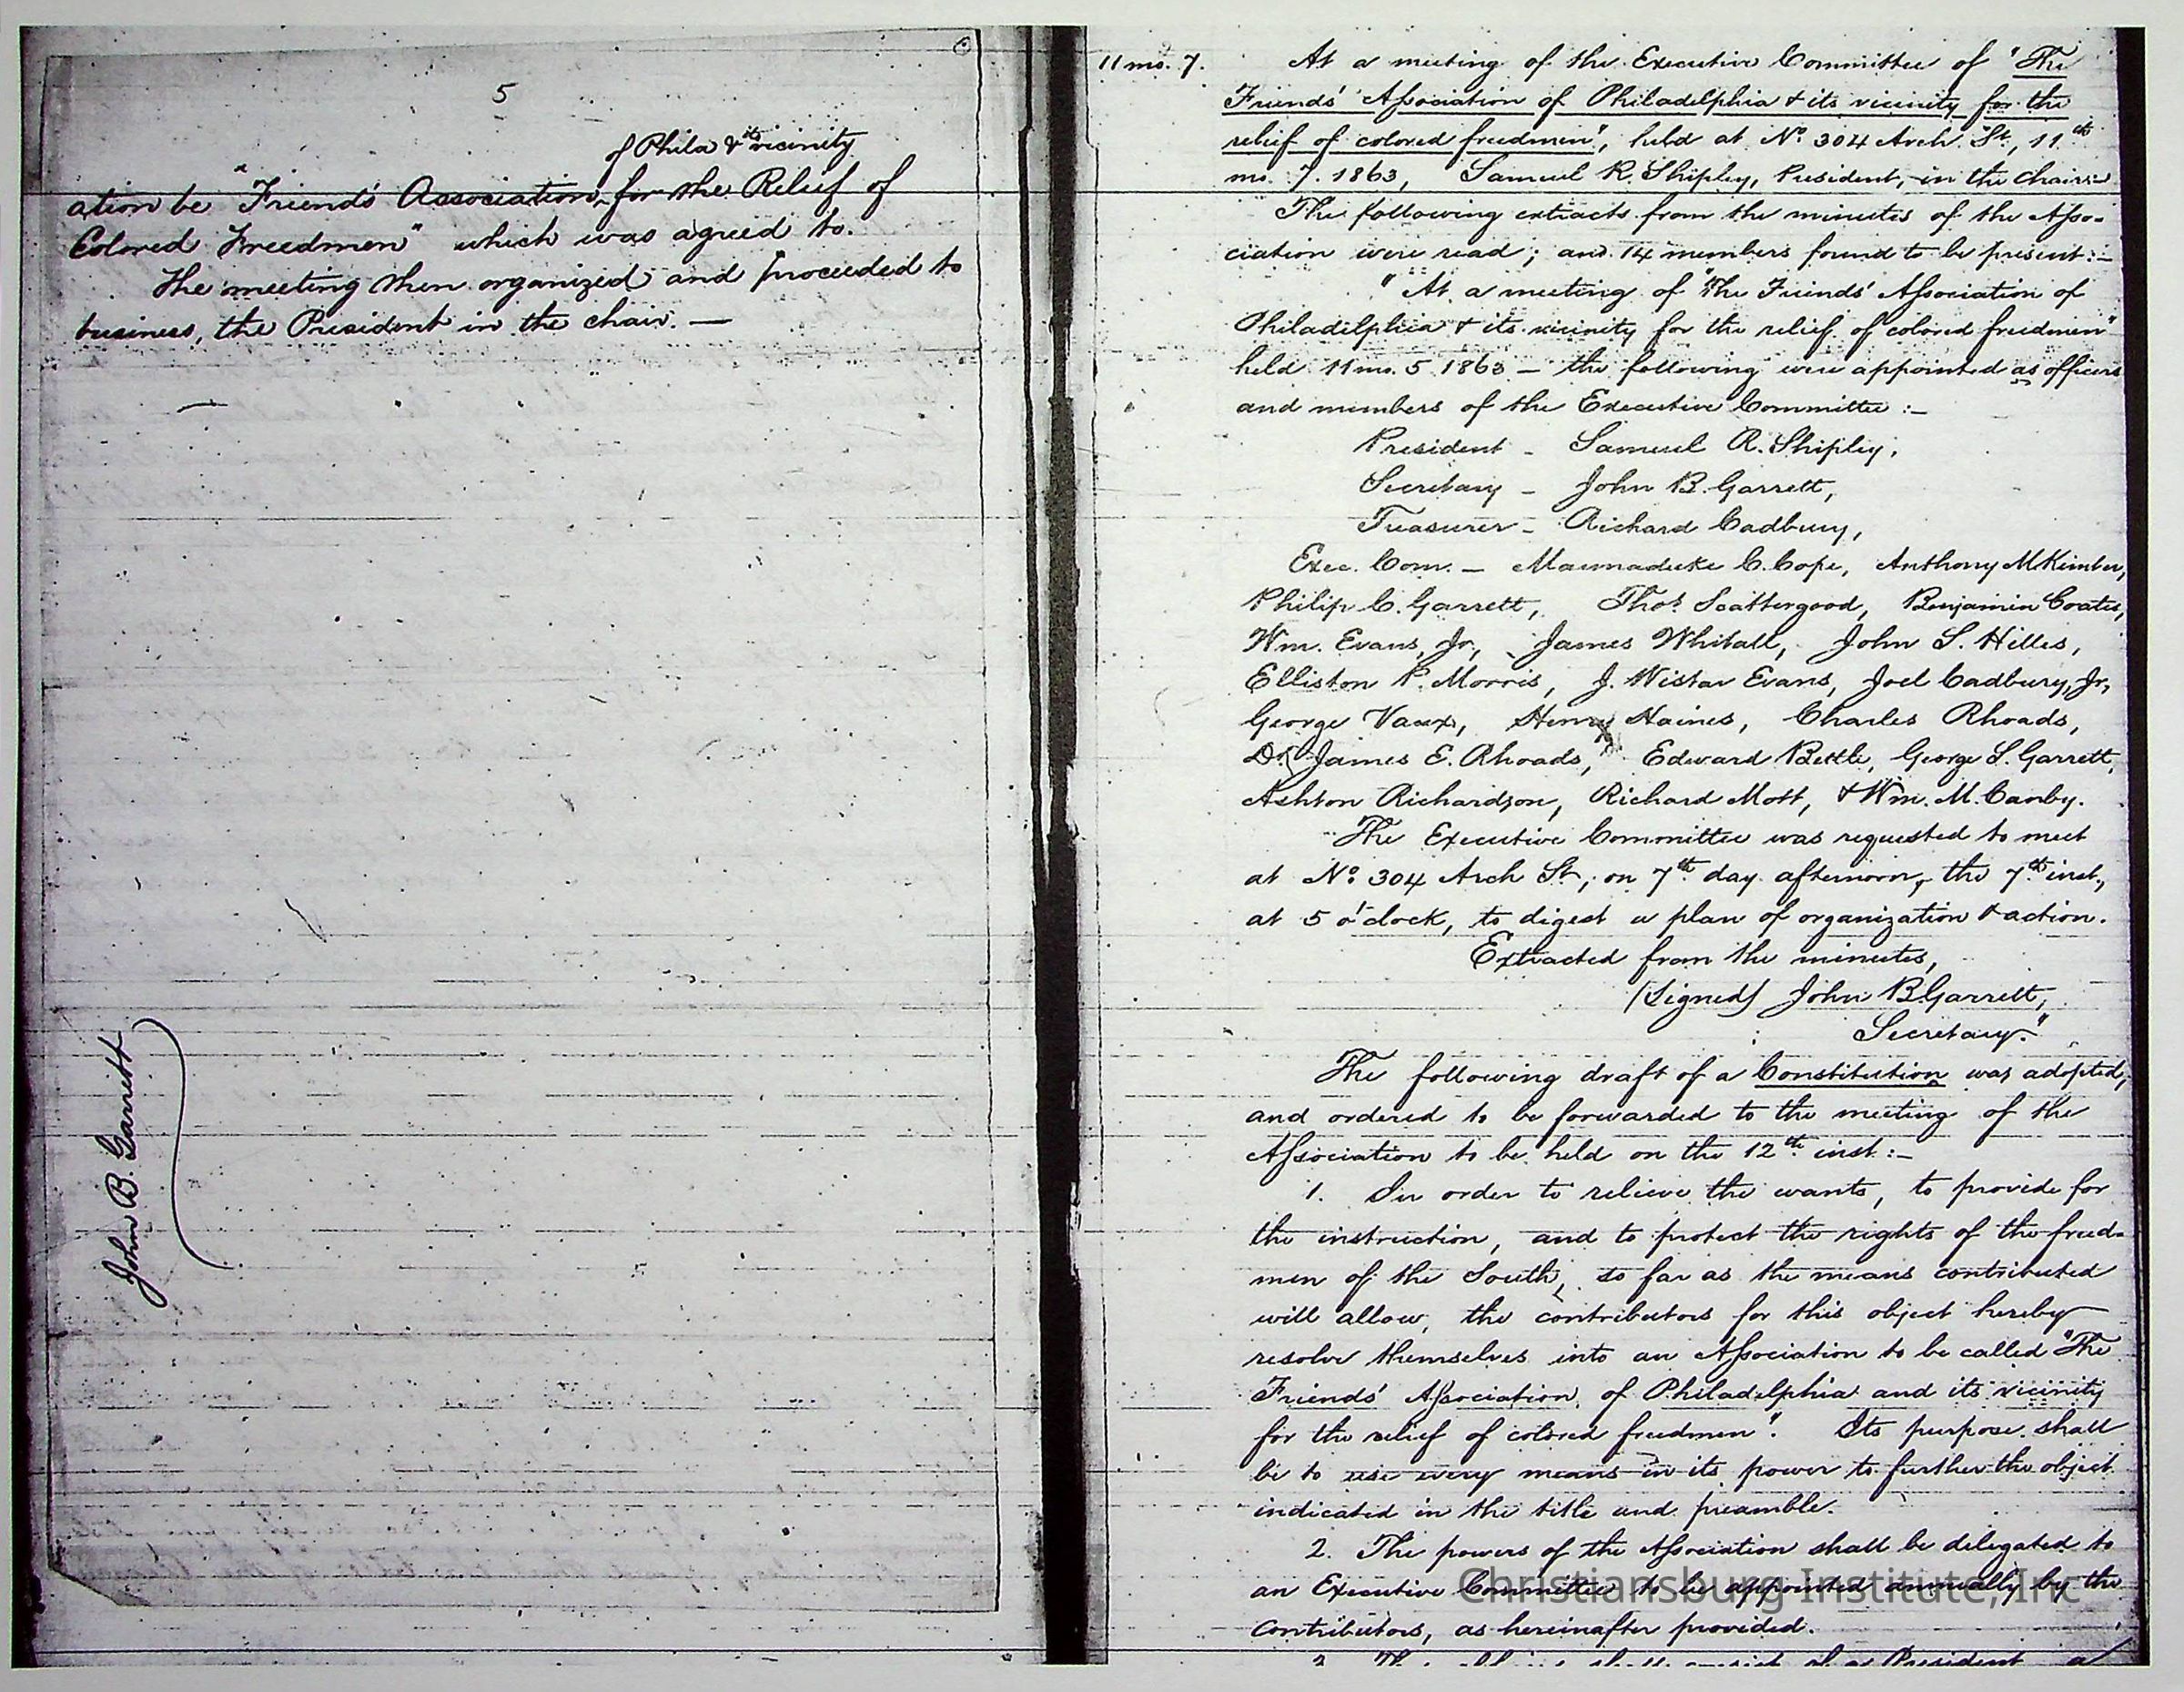 5
of Phila & its vicinity
ation be "Friends' Association, for the Relief of
Colored Freedmen" which was agreed to.
The meeting then organized and proceeded to
business, the President in the chair. —
John B. Garrett
11 mo. 7.
At a meeting of the Executive Committee of "The
Friends' Association of Philadelphia & its vicinity for the
relief of colored freedmen", held at No. 304 Arch St., 11th
mo. 7. 1863, Samuel R. Shipley, President, in the chair:—
The following extracts from the minutes of the Asso-
ciation were read; and 14 members found to be present:—
"At a meeting of "The Friends' Association of
Philadelphia & its vicinity for the relief of colored freedmen"
held 11 mo. 5. 1863 — the following were appointed as officers
and members of the Executive Committee:—
President — Samuel R. Shipley,
Secretary — John B. Garrett,
Treasurer — Richard Cadbury,
Exec. Com. — Marmaduke C. Cope, Anthony M Kimber,
Philip C. Garrett, Thos. Scattergood, Benjamin Coates,
Wm. Evans, Jr., James Whitall, John S. Hilles,
Elliston P. Morris, J. Wistar Evans, Joel Cadbury, Jr,
George Vaux, Henry Haines, Charles Rhoads,
Dr. James E. Rhoads, Edward Bettle, George S. Garrett,
Ashton Richardson, Richard Mott, & Wm. M. Canby.
The Executive Committee was requested to meet
at No. 304 Arch St., on 7th day afternoon, the 7th inst.,
at 5 o'clock, to digest a plan of organization & action.
Extracted from the minutes,
(Signed) John B Garrett,
Secretary."
The following draft of a Constitution was adopted,
and ordered to be forwarded to the meeting of the
Association to be held on the 12th inst:—
1. In order to relieve the wants, to provide for
the instruction, and to protect the rights of the freed-
men of the South, so far as the means contributed
will allow, the contributors for this object hereby
resolve themselves into an Association to be called "The
Friends' Association of Philadelphia and its vicinity
for the relief of colored freedmen". Its purpose shall
be to use every means in its power to further the object
indicated in the title and preamble.
2. The powers of the Association shall be delegated to
an Executive Committee to be appointed annually by the
contributors, as hereinafter provided.
Christiansburg Institute, Inc